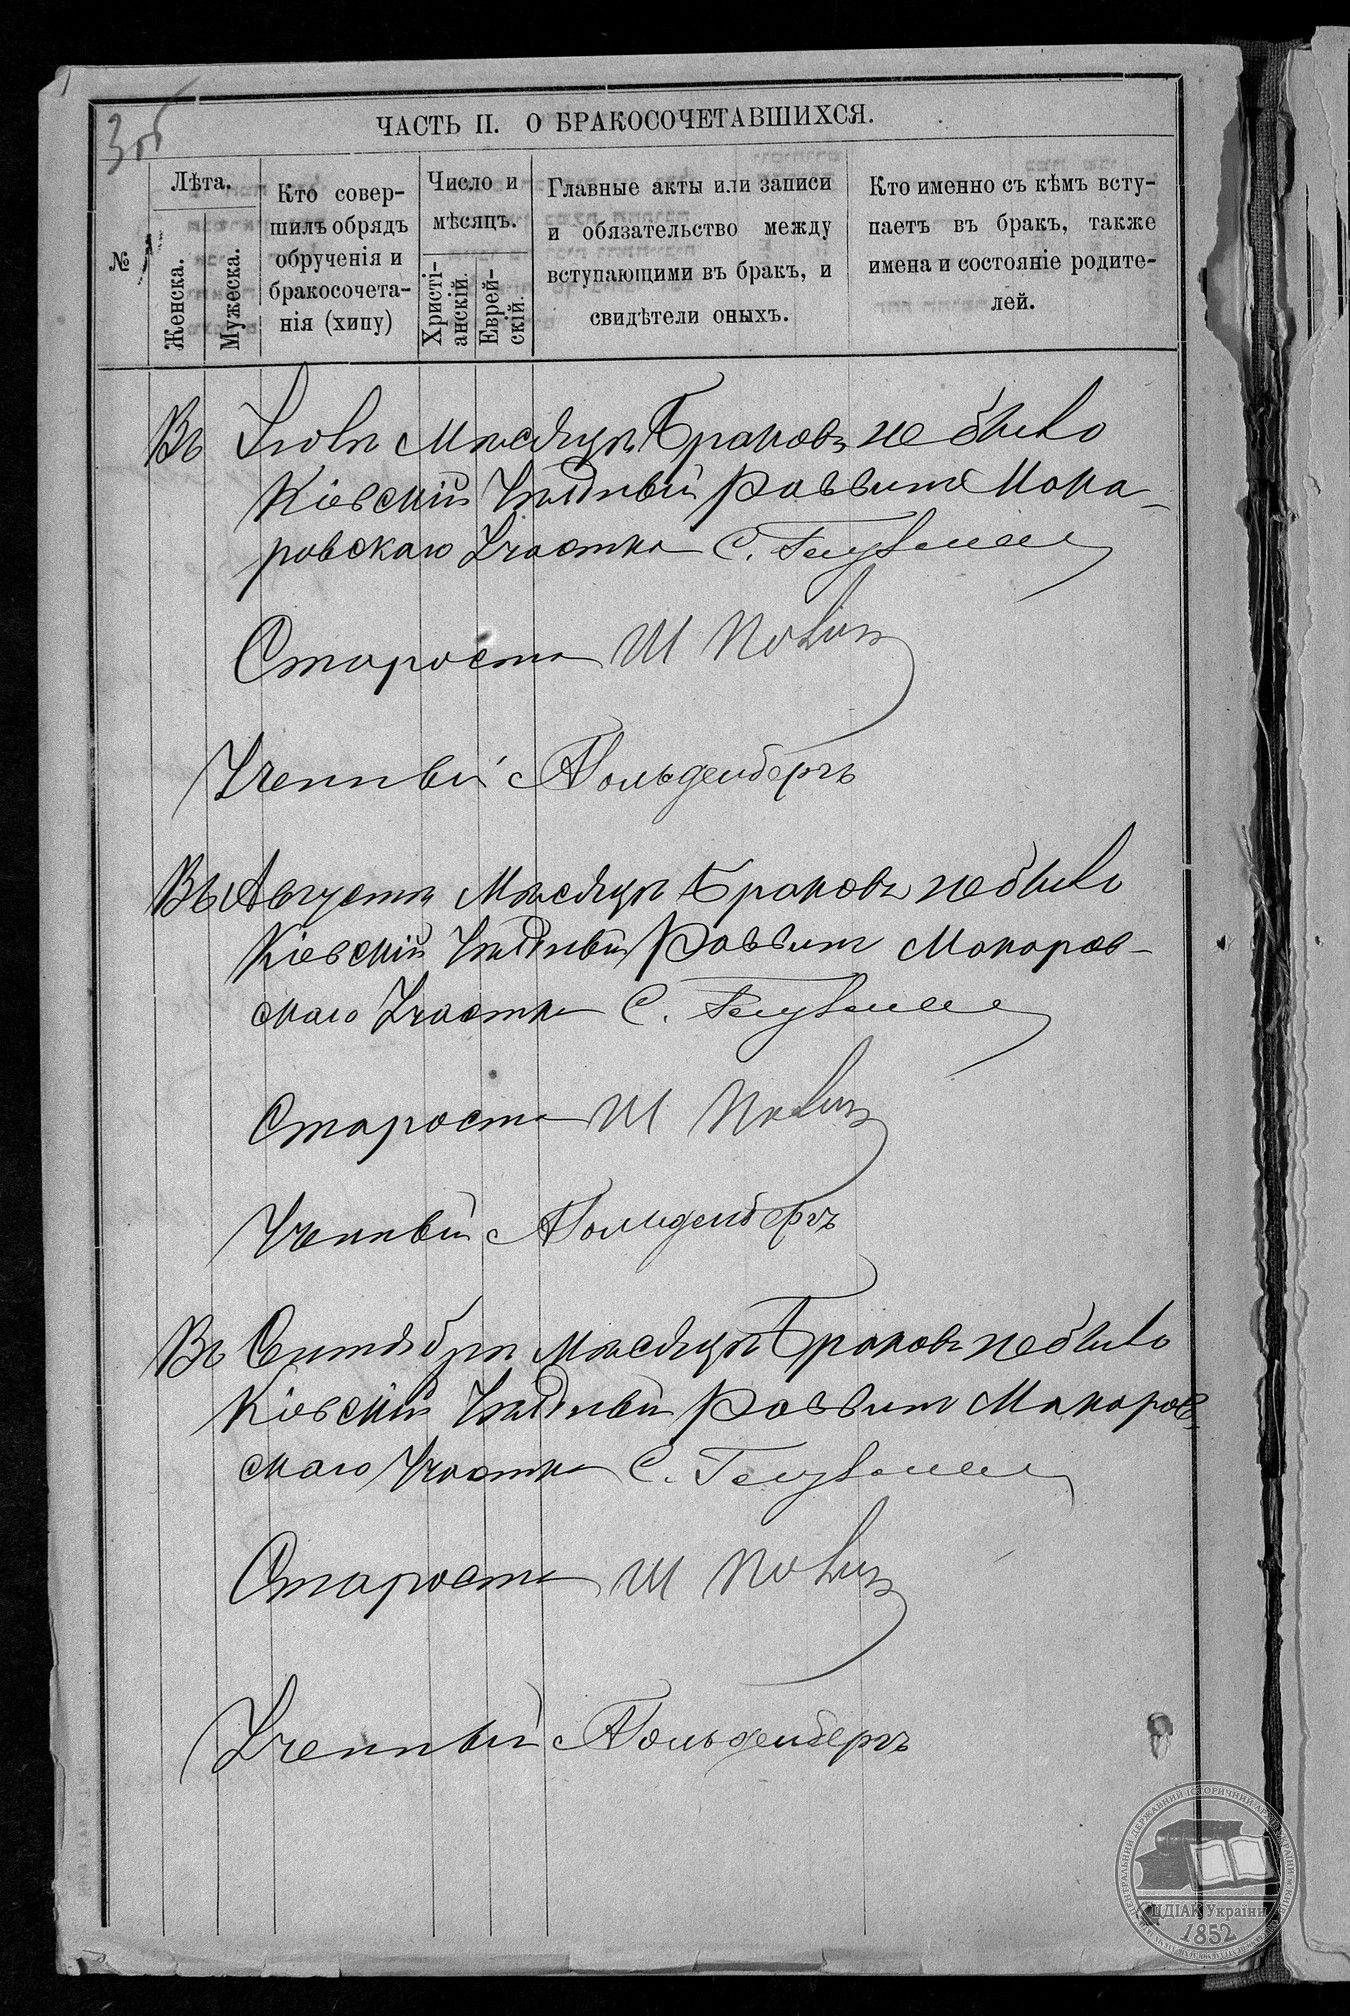 3об
ЧАСТЬ II. О БРАКОСОЧЕТАВШИХСЯ.
№
Лѣта.
Женска.
Мужеска.
Кто совер-
шилъ обрядъ
обрученія и
бракосочета-
нія (хипу)
Число и
мѣсяцъ.
Христі-
анскій.
Еврей-
скій.
Главные акты или записи
и обязательство между
вступающими въ бракъ, и
свидѣтели оныхъ.
Кто именно съ кѣмъ всту-
паетъ въ бракъ, также
имена и состояніе родите-
лей.
Въ Іюлѣ Мѣсяцѣ Браковъ не было
Кіевскій Уѣздный Раввинъ Мака-
ровскаго Участка С.
Староста Ш
Ученный Гольденбергъ
Въ Августѣ Мѣсяцѣ Браковъ не было
Кіевскій Уѣздный Раввинъ Макаров-
скаго Участка С.
Староста Ш
Ученный Гольденбергъ
Въ Сентябрѣ Мѣсяцѣ Браковъ не было
Кіевскій Уѣздный Раввинъ Макаров-
скаго Участка С.
Староста Ш
Ученный Гольденбергъ
ЦЕНТРАЛЬНИЙ ДЕРЖАВНИЙ ІСТОРИЧНИЙ АРХІВ УКРАЇНИ, м. КИЇВ
ЦДІАК України
1852